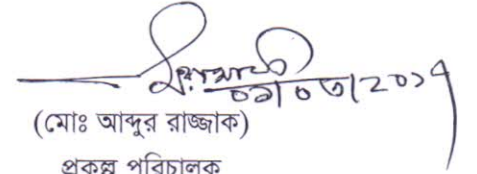 ০৯/০৩/২০১৭
(মোঃ আব্দুর রাজ্জাক)
প্রকল্প পরিচালক